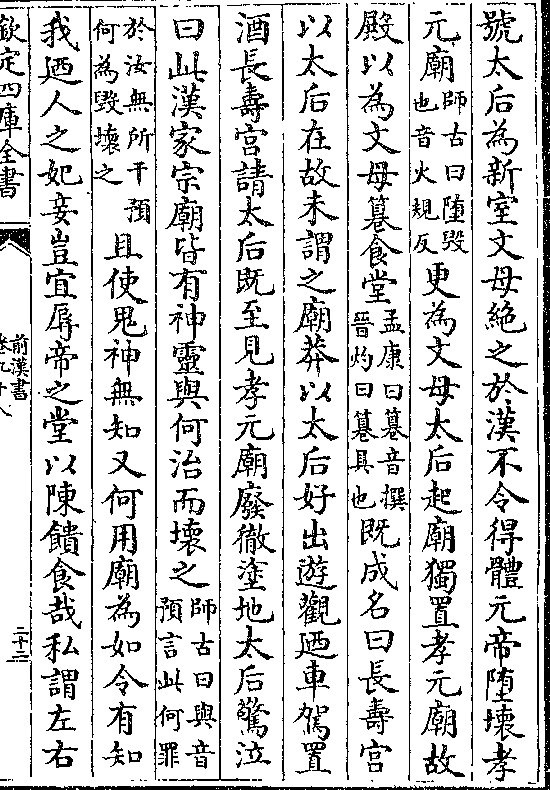 號太后為新室文母絶之於漢不令得體元帝墮壞孝
元廟師古曰墮毀也音火規反更為文母太后起廟獨置孝元廟故
殿以為文母篹食堂孟康曰篹音撰晉灼曰篹具也既成名曰長壽宫
以太后在故未謂之廟莽以太后好出遊觀廼車駕置
酒長壽宫請太后既至見孝元廟廢徹塗地太后驚泣
曰此漢家宗廟皆有神靈與何治而壞之師古曰與音預言此何罪
於汝無所干預何為毀壞之且使鬼神無知又何用廟為如令有知
我廼人之妃妾豈宜辱帝之堂以陳饋食哉私謂左右
欽定四庫全書
前漢書
卷九十八
二十三